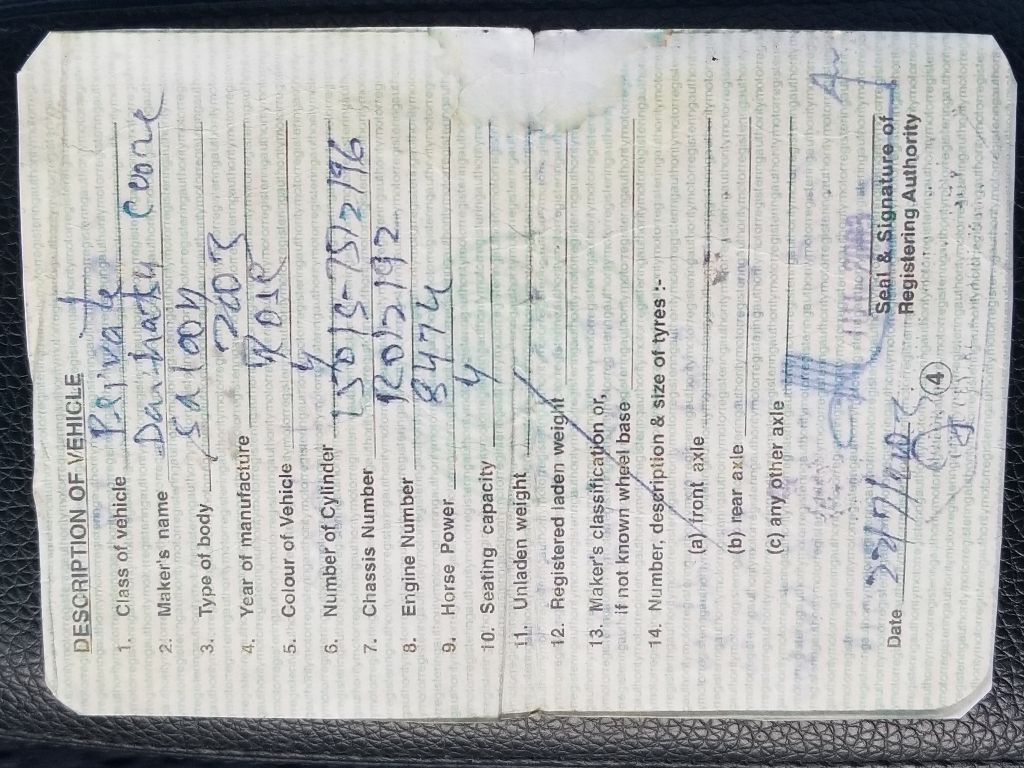 DESCRIPTION OF VEHICLE
1. Class of vehicle Private
2. Maker's name Daihatsu Cuore
3. Type of body Saloon
4. Year of manufacture 2003
5. Colour of Vehicle
6. Number of Cylinder 4
7. Chassis Number L501S-7512196
8. Engine Number
9. Horse Power 847cc
10. Seating capacity 4
11. Unladen weight
12. Registered laden weight
13. Maker's classification or,
if not known wheel base
14. Number, description & size of tyres :-
(a) front axle
(b) rear axle
(c) any other axle
Date
Seal & Signature of
Registering Authority
4